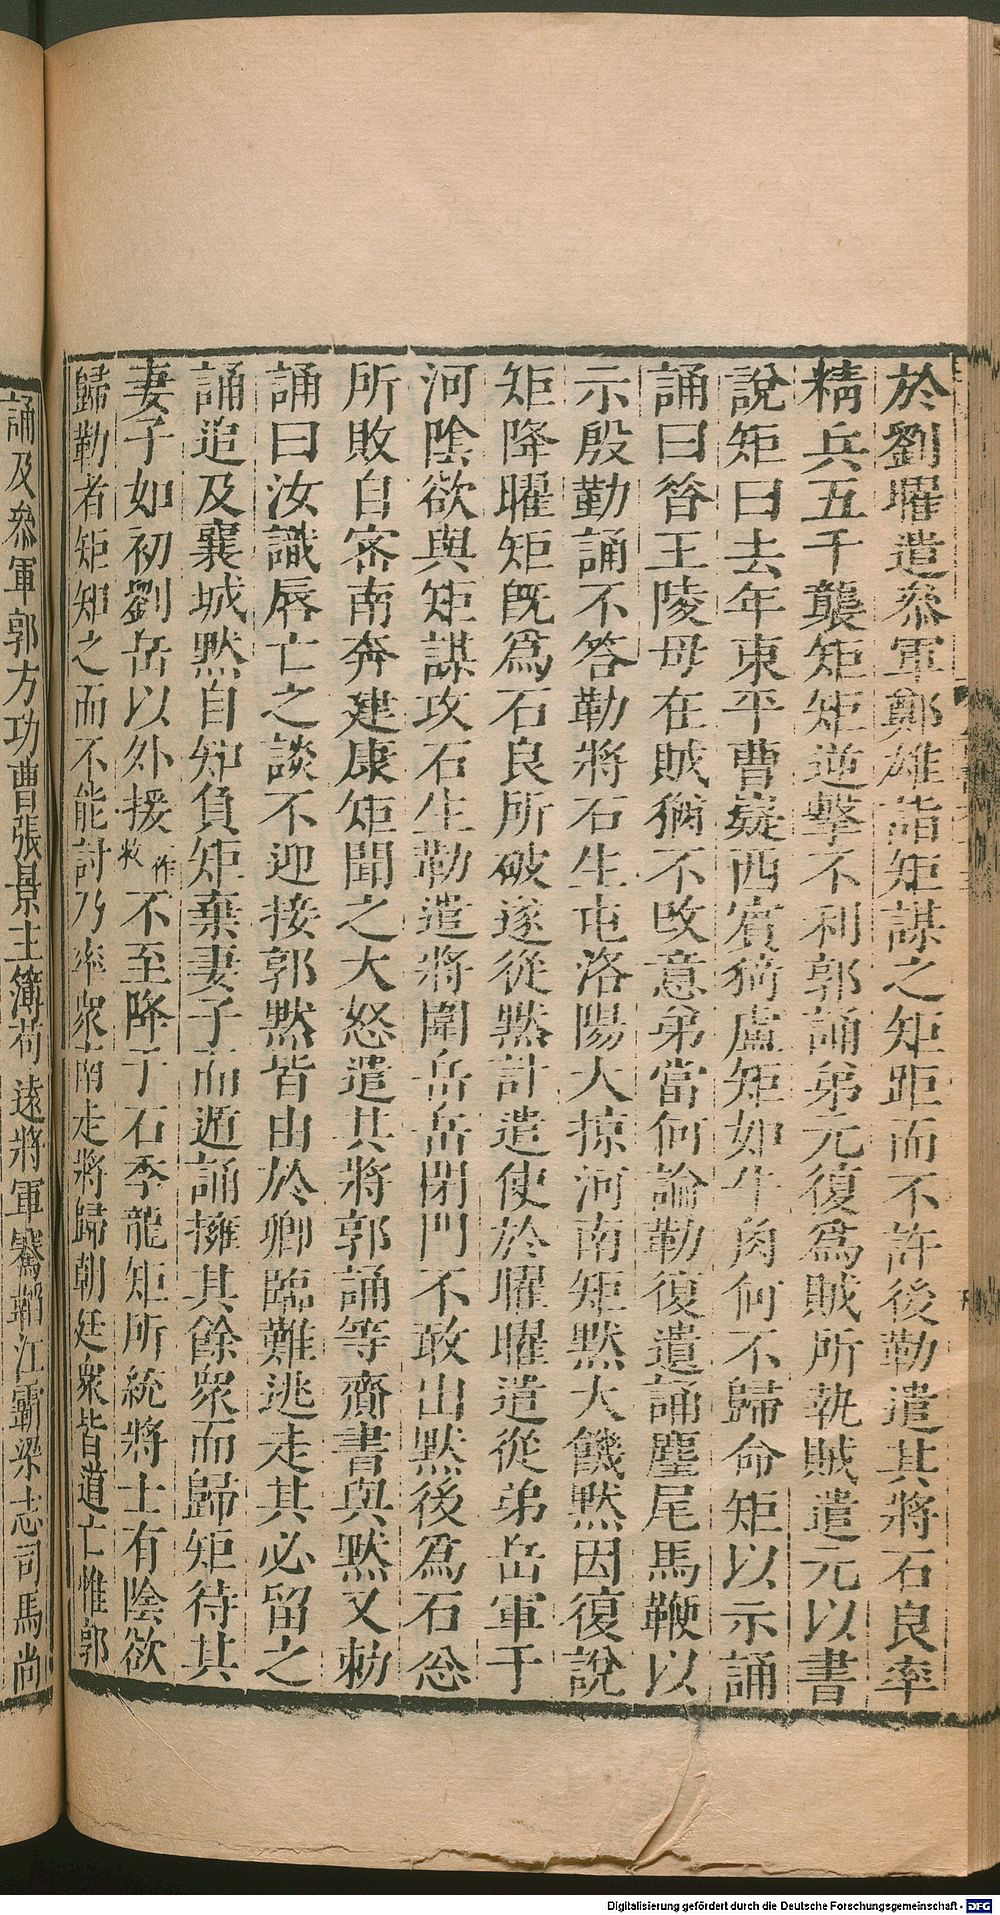 於劉曜遣叅軍鄭雄詣矩謀之矩距而不許後勒遣其將石良率
精兵五千襲矩矩逆擊不利郭誦弟元復爲賊所執賊遣元以書
說矩曰去年東平曹嶷西賓猗盧矩如牛角何不歸命矩以示誦
誦曰昝王陵母在賊猶不改意弟當何論勒復遺誦塵尾馬鞭以
示殷勤誦不答勒將石生屯洛陽大掠河南矩默大饑默因復說
矩降曜矩旣爲石良所破遂從默計遣使於曜曜遣從弟岳軍于
河陰欲與矩謀攻石生勒遣將圍岳岳閉門不敢出默後爲石忩
所敗自密南奔建康矩聞之大怒遣其將郭誦等齎書與默又勑
誦曰汝識唇亡之談不迎接郭默皆由於卿臨難逃走其必留之
誦追及襄城默自知負矩棄妻子而遁誦擁其餘衆而歸矩待其
妻子如初劉岳以外援一作救不至降于石季龍矩所統將士有陰欲
歸勒者矩知之而不能討乃率衆南走將歸朝廷衆皆道亡惟郭
誦及叅軍郭方功曹張景主簿苟遠將軍騫韜江霸梁志司馬尚
Digitalisierung gefördert durch die Deutsche Forschungsgemeinschaft - DFG